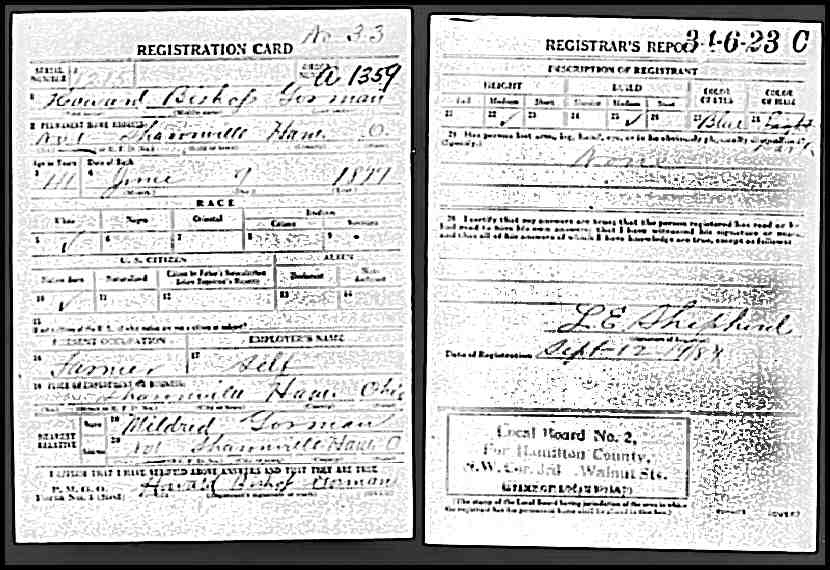 No 33
REGISTRATION CARD
SERIAL NUMBER 1215
ORDER NUMBER A 1359
1 Howard Bishop Gorman
2 PERMANENT HOME ADDRESS
Sharonville Ham. O.
Age in Years Date of Birth
3 41 4 June 9 1877
(Month) (Day) (Year)
RACE
White Negro Oriental Indian
Citizen
5 ✓ 6 7 8 9
U. S. CITIZEN ALIEN
Native Born Naturalized Citizen by Father's Naturalization Before Registrant's Majority Declarant Non-declarant
10 ✓ 11 12 13 14
15
PRESENT OCCUPATION EMPLOYER'S NAME
16 Farmer 17 Self
18 PLACE OF EMPLOYMENT OR BUSINESS
Sharonville Ham. Ohio
NEAREST RELATIVE Name 19 Mildred Gorman
Address 20 Sharonville Ham O
I AFFIRM THAT I HAVE VERIFIED ABOVE ANSWERS AND THAT THEY ARE TRUE
P. M. G. O.
Form No. 1 (Red) Howard Bishop Gorman
REGISTRAR'S REPORT 34-6-23 C
DESCRIPTION OF REGISTRANT
HEIGHT BUILD COLOR OF EYES COLOR OF HAIR
Tall Medium Short Slender Medium Stout
21 22 ✓ 23 24 25 ✓ 26 27 Blue 28
29 Has person lost arm, leg, hand, eye, or is he obviously physically disqualified?
(Specify.)
None
30 I certify that my answers are true; that the person registered has read or has
had read to him his own answers; that I have witnessed his signature or mark,
and that all of his answers of which I have knowledge are true, except as follows:
L E Shepherd
(Signature of Registrar)
Date of Registration Sept-12-1918
Local Board No. 2,
For Hamilton County,
S.W. Cor. 3rd Walnut Sts.
(The stamp of the Local Board having jurisdiction of the area in which
the registrant has his permanent home shall be placed in this box.)